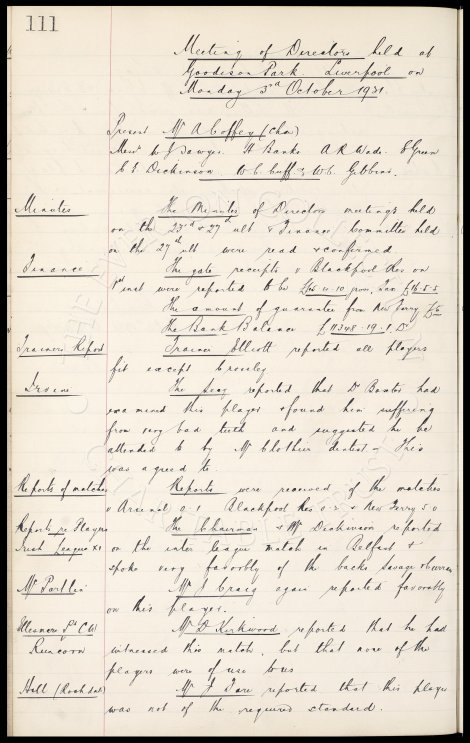 111
Meeting of Directors held at
Goodison Park Liverpool on
Monday 5th October 1931.
Present Mr A Coffey (Chair)
Messrs W J Sawyer. A Banks. A R Wade. E Green
C S Dickinson. W C Cuff & W C Gibbins.
Minutes The Minutes of Directors meetings held
on the 23rd & 27th ult & Finance Committee held
on the 27th ult were read & confirmed
Finance The gate receipts v Blackpool Res on
inst were reported to be £16-5-5
The amount of guarantee from New Ferry £5
The Bank Balance £11348-19-1 Dr
Trainers Report Trainer Elliott reported all players
fit except Cressley
Irvine The Secy reported that Dr Baxter had
examined this player & found him suffering
from very bad teeth and suggested he be
attended to by Mr Clothier dentist - This
was agreed to.
Reports of matches Reports were received of the matches
v Arsenal 0.1 Blackpool Res 0.2 & New Ferry 5.0
Reports re Players The Chairman & Mr Dickinson reported
Irish League XI on the inter league match in Belfast &
spoke very favorably of the backs
Mr J Craig again reported favorably
on this player.
Mr D Kirkwood reported that he had
Runcorn witnessed this match, but that none of the
players were of use to us
Hall (Rochdale) Mr J Dare reported that this player
was not of the required standard.